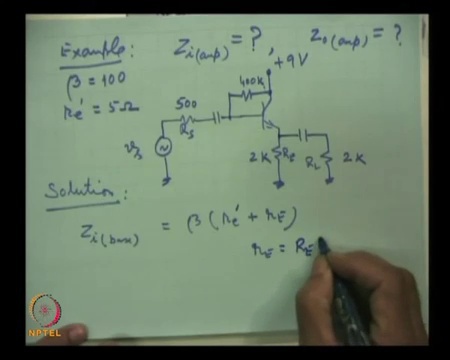 Example: Zi(amp) = ? , Zo(amp) = ?
β = 100
re' = 5 Ω
+9V
400K
500
RS
vs
2K RE
RL 2K
Solution:
Zi(base) = β ( re' + rE )
rE = RE
NPTEL